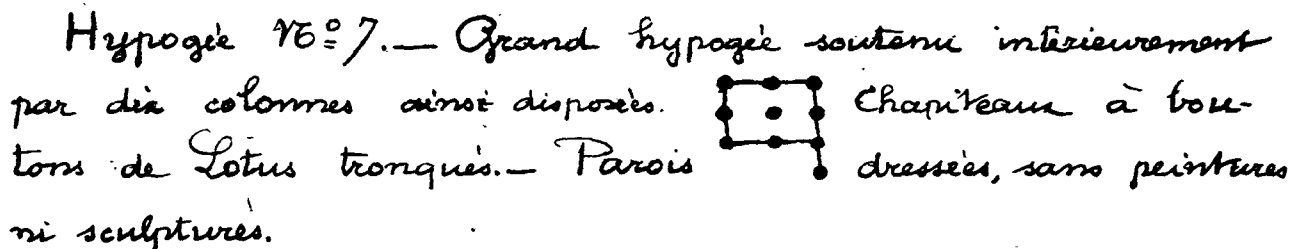 Hypogée Nº 7. — Grand hypogée soutenu intérieurement
par dix colonnes ainsi disposées. Chapiteaux à bou-
tons de Lotus tronqués. — Parois dressées, sans peintures
ni sculptures.